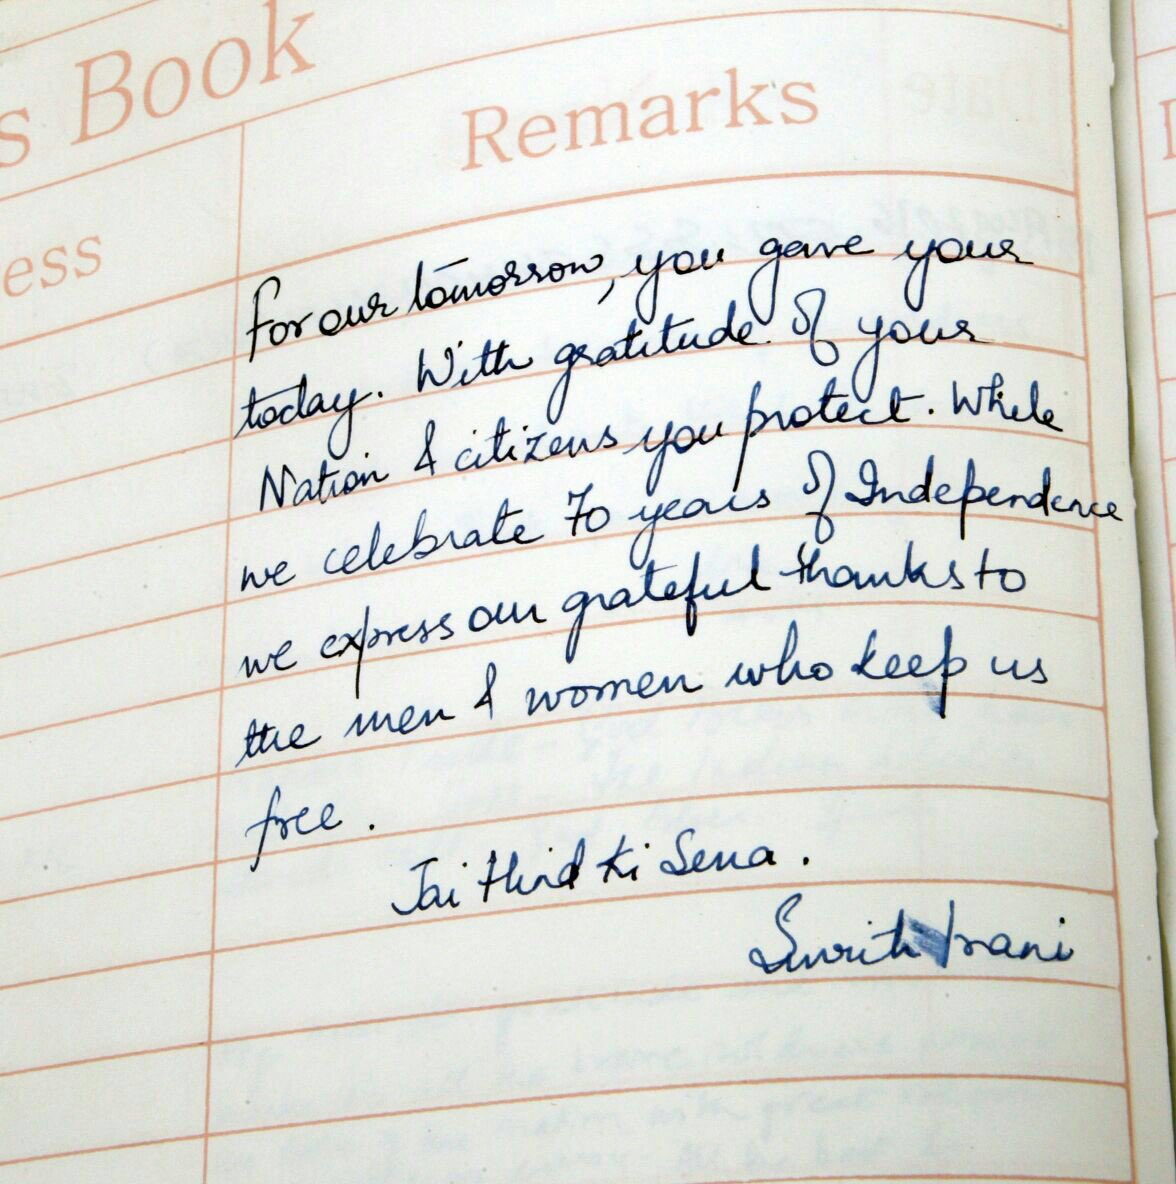 s Book
Remarks
ess
For our tomorrow, you gave your
today. With gratitude of your
Nation & citizens you protect. While
we celebrate 70 years of Independence
we express our grateful thanks to
the men & women who keep us
free.
Jai Hind Ki Sena.
Smriti Irani